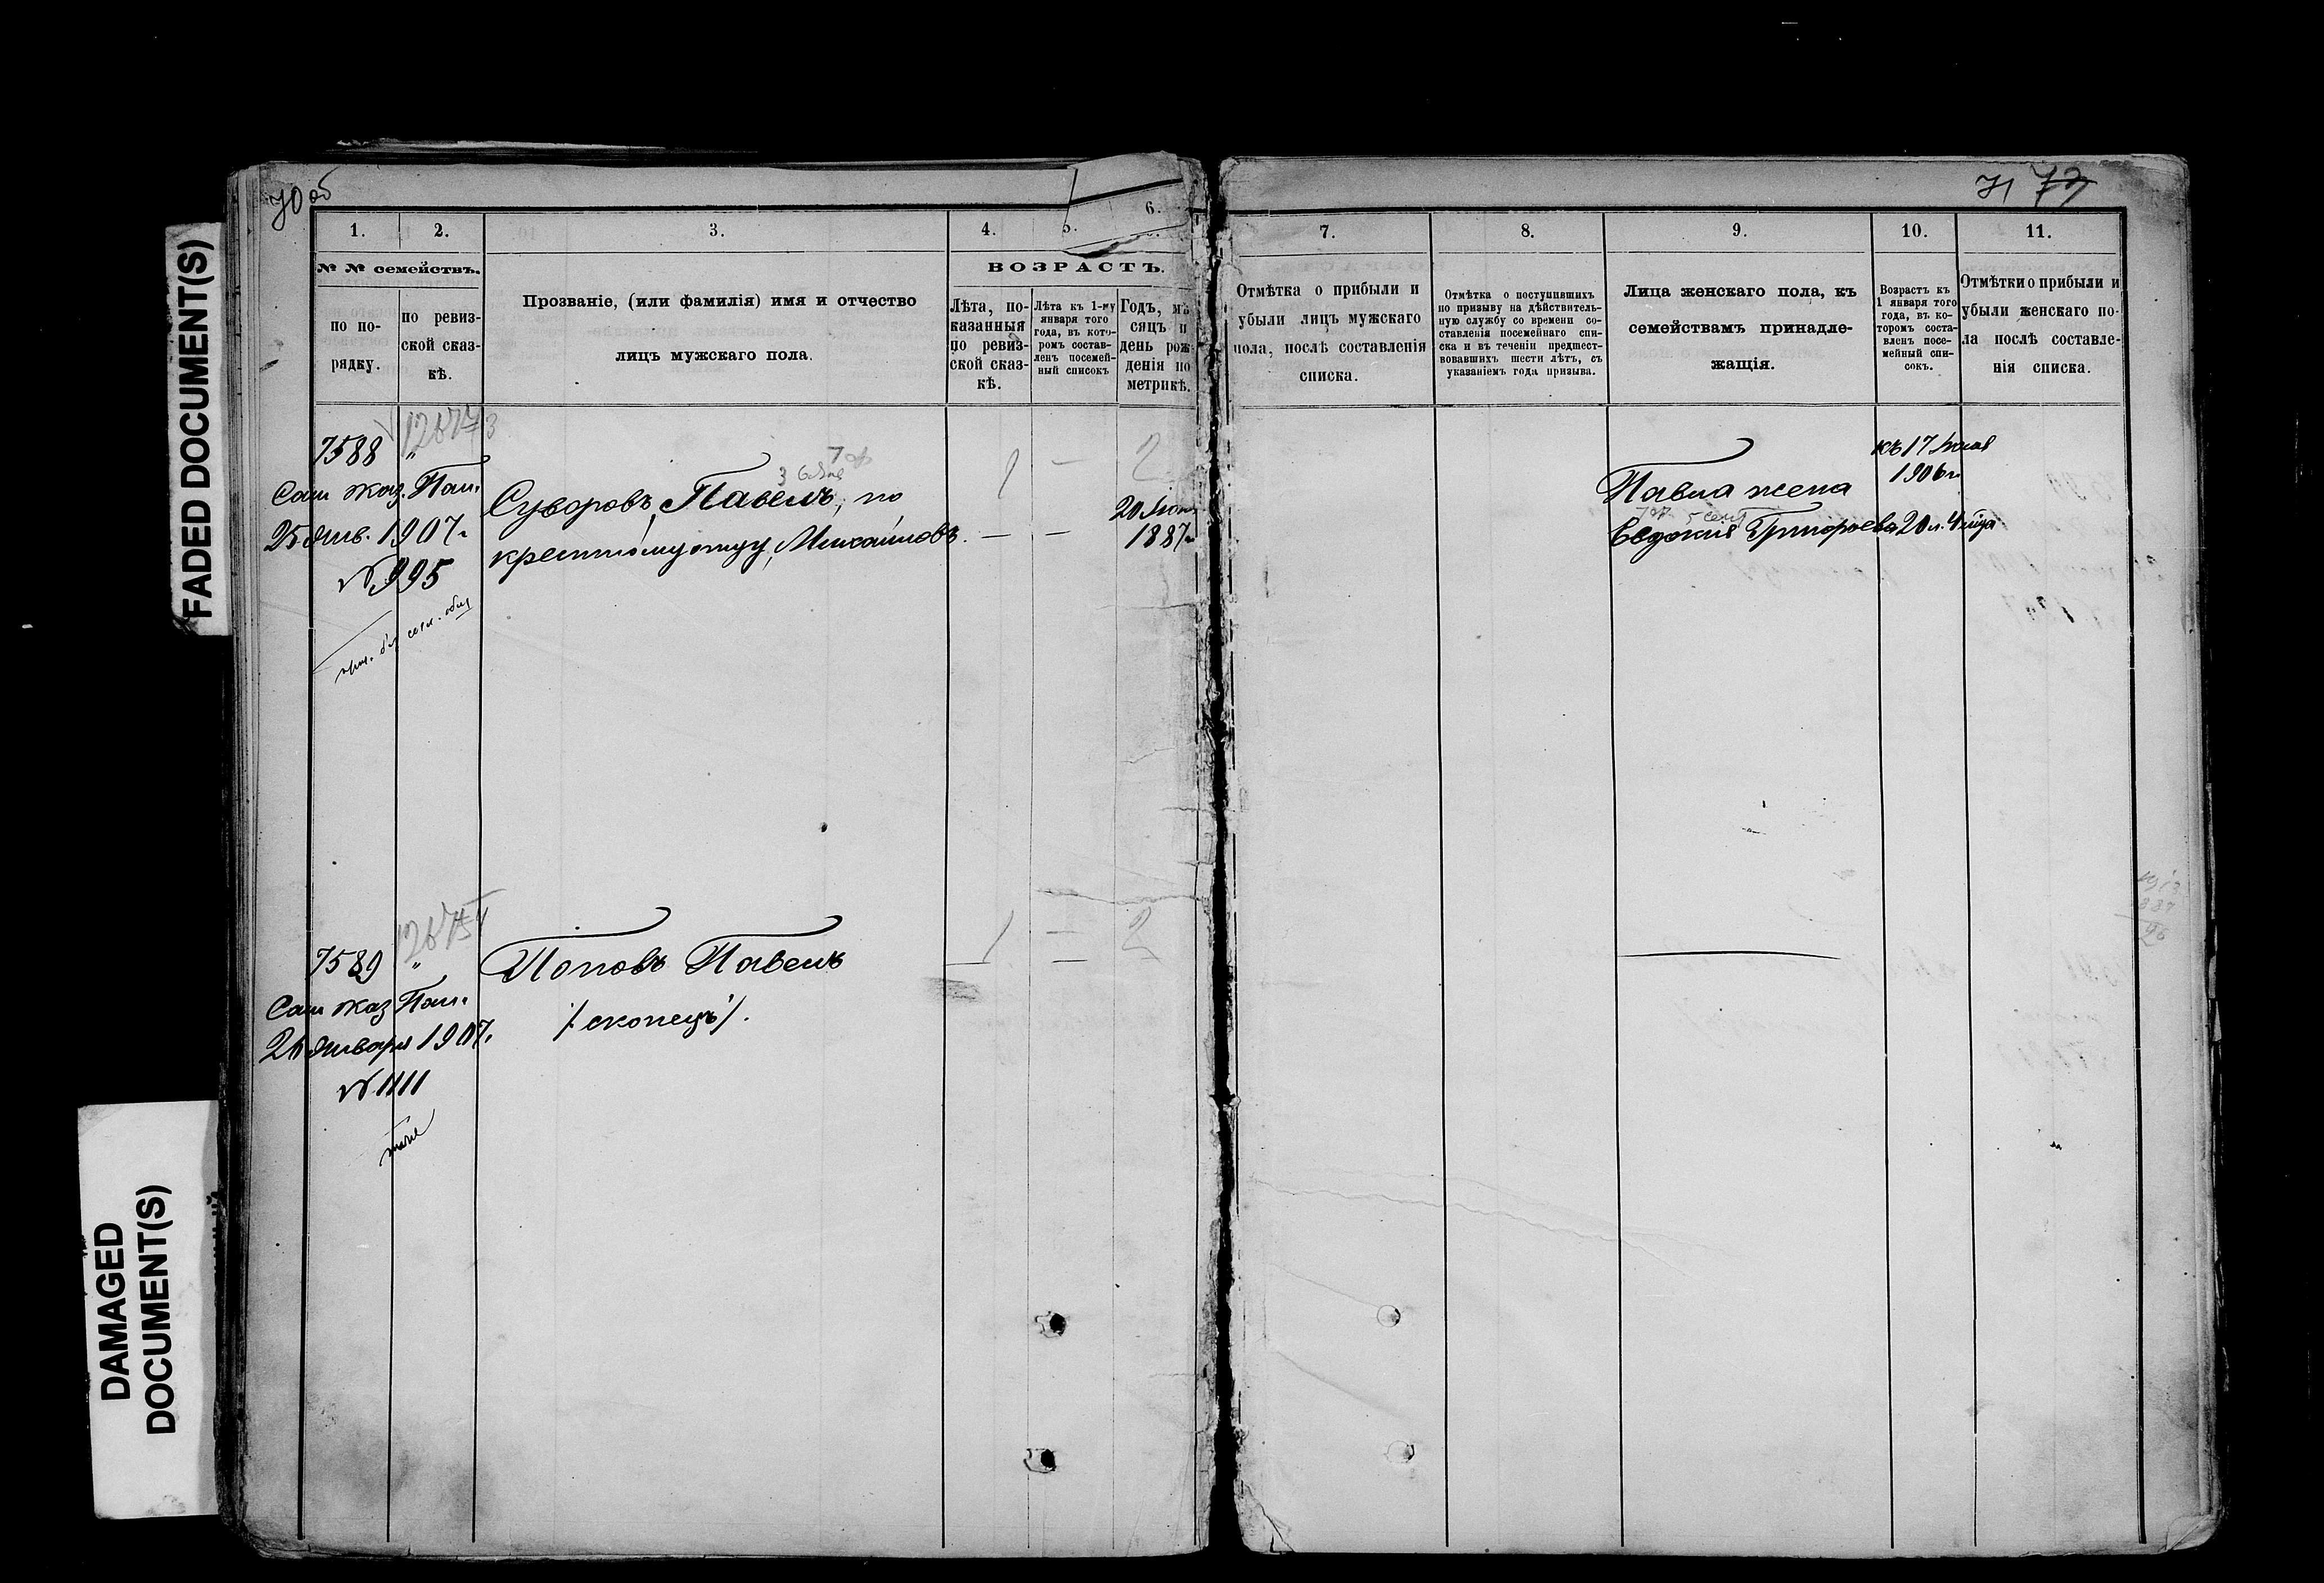 FADED DOCUMENT(S)
DAMAGED
DOCUMENT(S)
70 об
1.
2.
3.
4.
5.
6.
№ № семействъ.
ВОЗРАСТЪ.
по по-
рядку.
по ревиз-
ской сказ-
кѣ.
Прозваніе, (или фамилія) имя и отчество
лицъ мужскаго пола.
Лѣта, по-
казанныя
по ревиз-
ской сказ-
кѣ.
Лѣта къ 1-му
января того
года, въ кото-
ромъ состав-
ленъ посемей-
ный списокъ
Годъ, мѣ-
сяцъ и
день рож-
денія по
метрикѣ.
7588 "
Сам каз. Пал.
25 Янв. 1907 г.
№ 995
Суворовъ, Павелъ, по
крестному отцу, Михаиловъ. — —
20 Іюня
1887 г.
1 — 2
7589 "
Сам каз Пал.
26 Января 1907.
№ 1111
тоже
Поповъ Павелъ
/скопецъ/.
1 — 2
71 72
7.
8.
9.
10.
11.
Отмѣтка о прибыли и
убыли лицъ мужскаго
пола, послѣ составленія
списка.
Отмѣтка о поступившихъ
по призыву на дѣйствитель-
ную службу со времени со-
ставленія посемейнаго спи-
ска и въ теченіи предшест-
вовавшихъ шести лѣтъ, съ
указаніемъ года призыва.
Лица женскаго пола, къ
семействамъ принадле-
жащія.
Возрастъ къ
1 января того
года, въ ко-
торомъ соста-
вленъ посе-
мейный спи-
сокъ.
Отмѣтки о прибыли и
убыли женскаго по-
ла послѣ составле-
нія списка.
Павла жена
Евдокія Григорьева
къ 17 Іюля
1906 г.
20 л. 4 м-ца